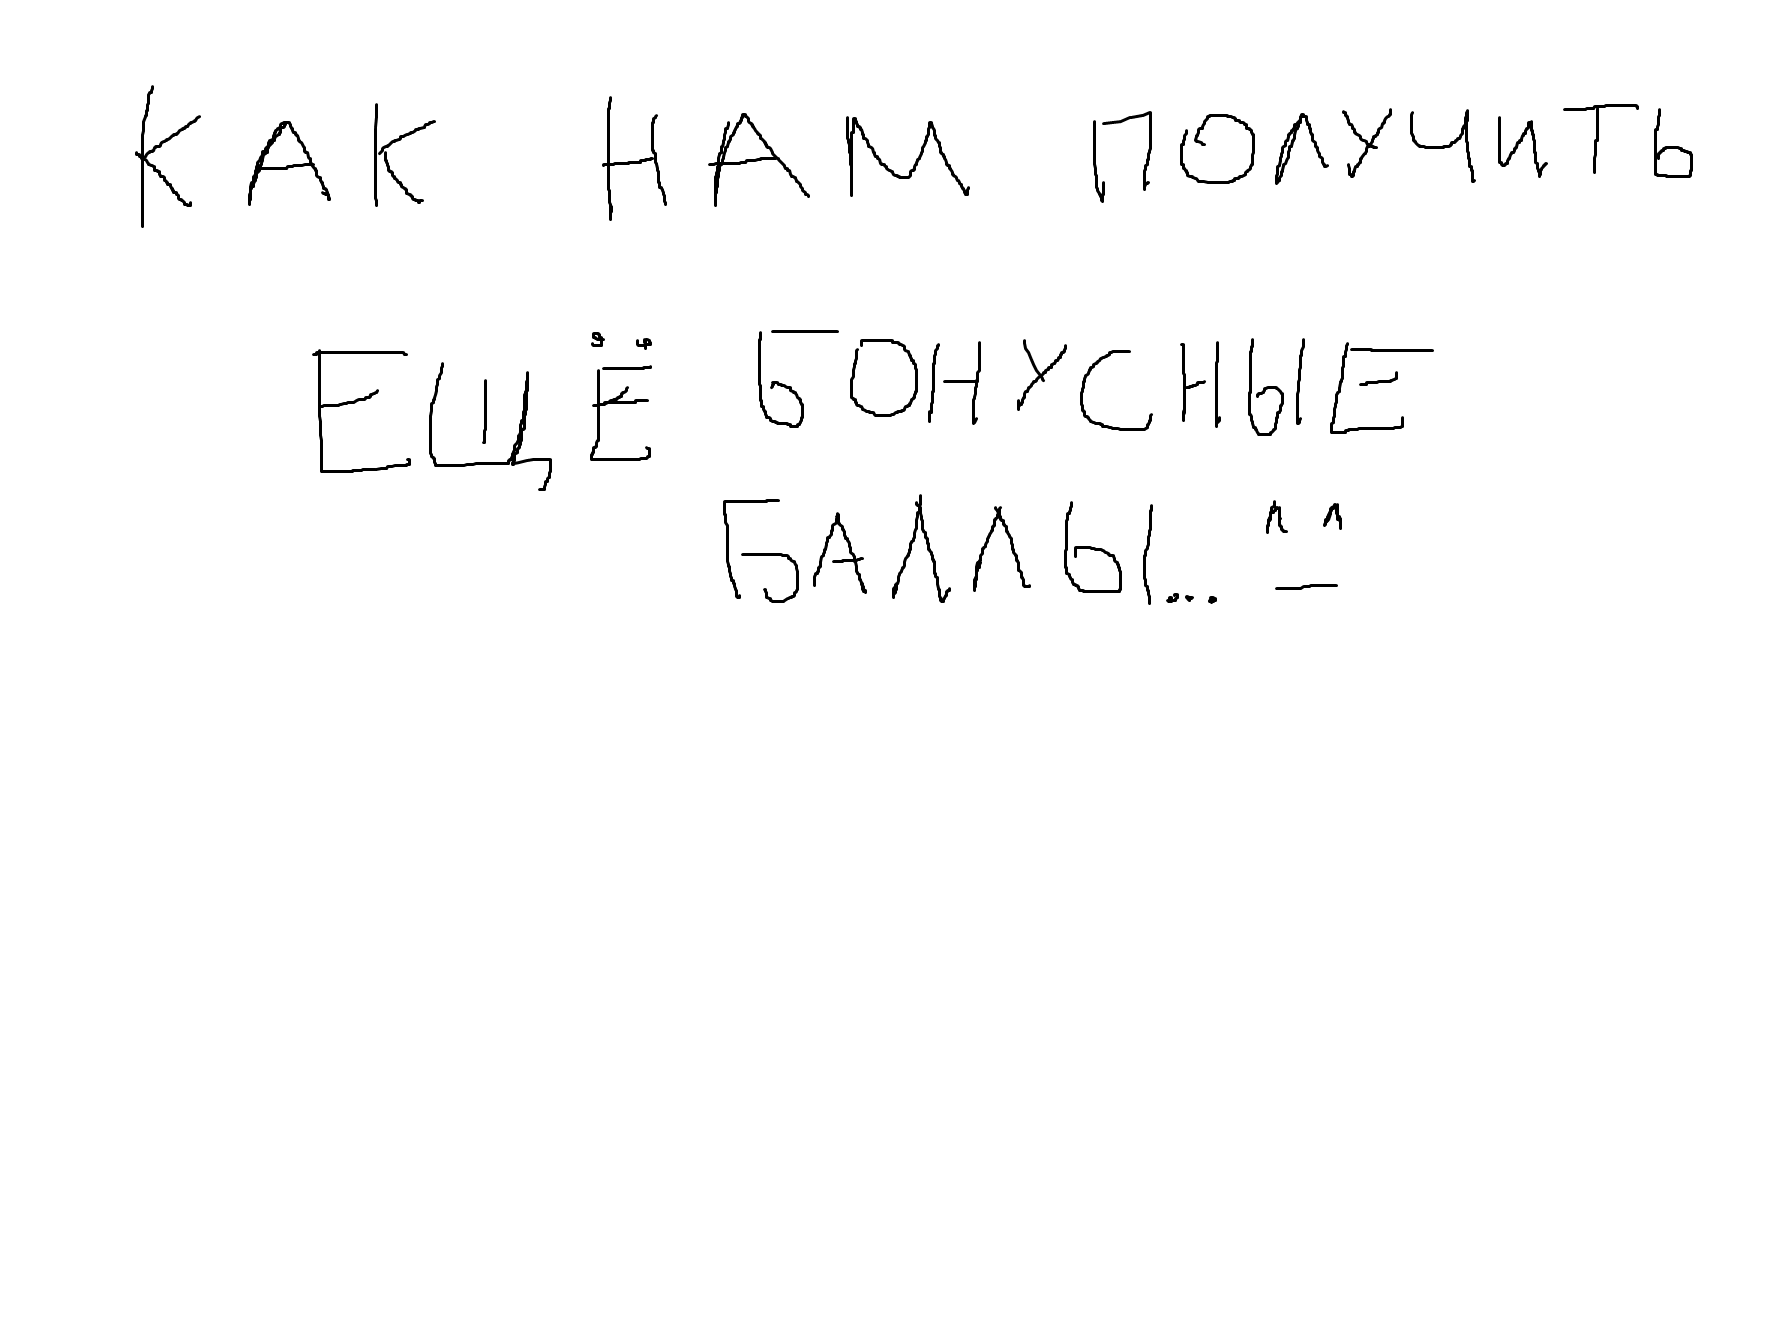 КАК НАМ ПОЛУЧИТЬ
ЕЩЁ БОНУСНЫЕ
БАЛЛЫ... ^_^